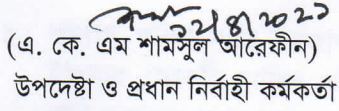 (এ. কে. এম শামসুল আরেফীন)
উপদেষ্টা ও প্রধান নির্বাহী কর্মকর্তা